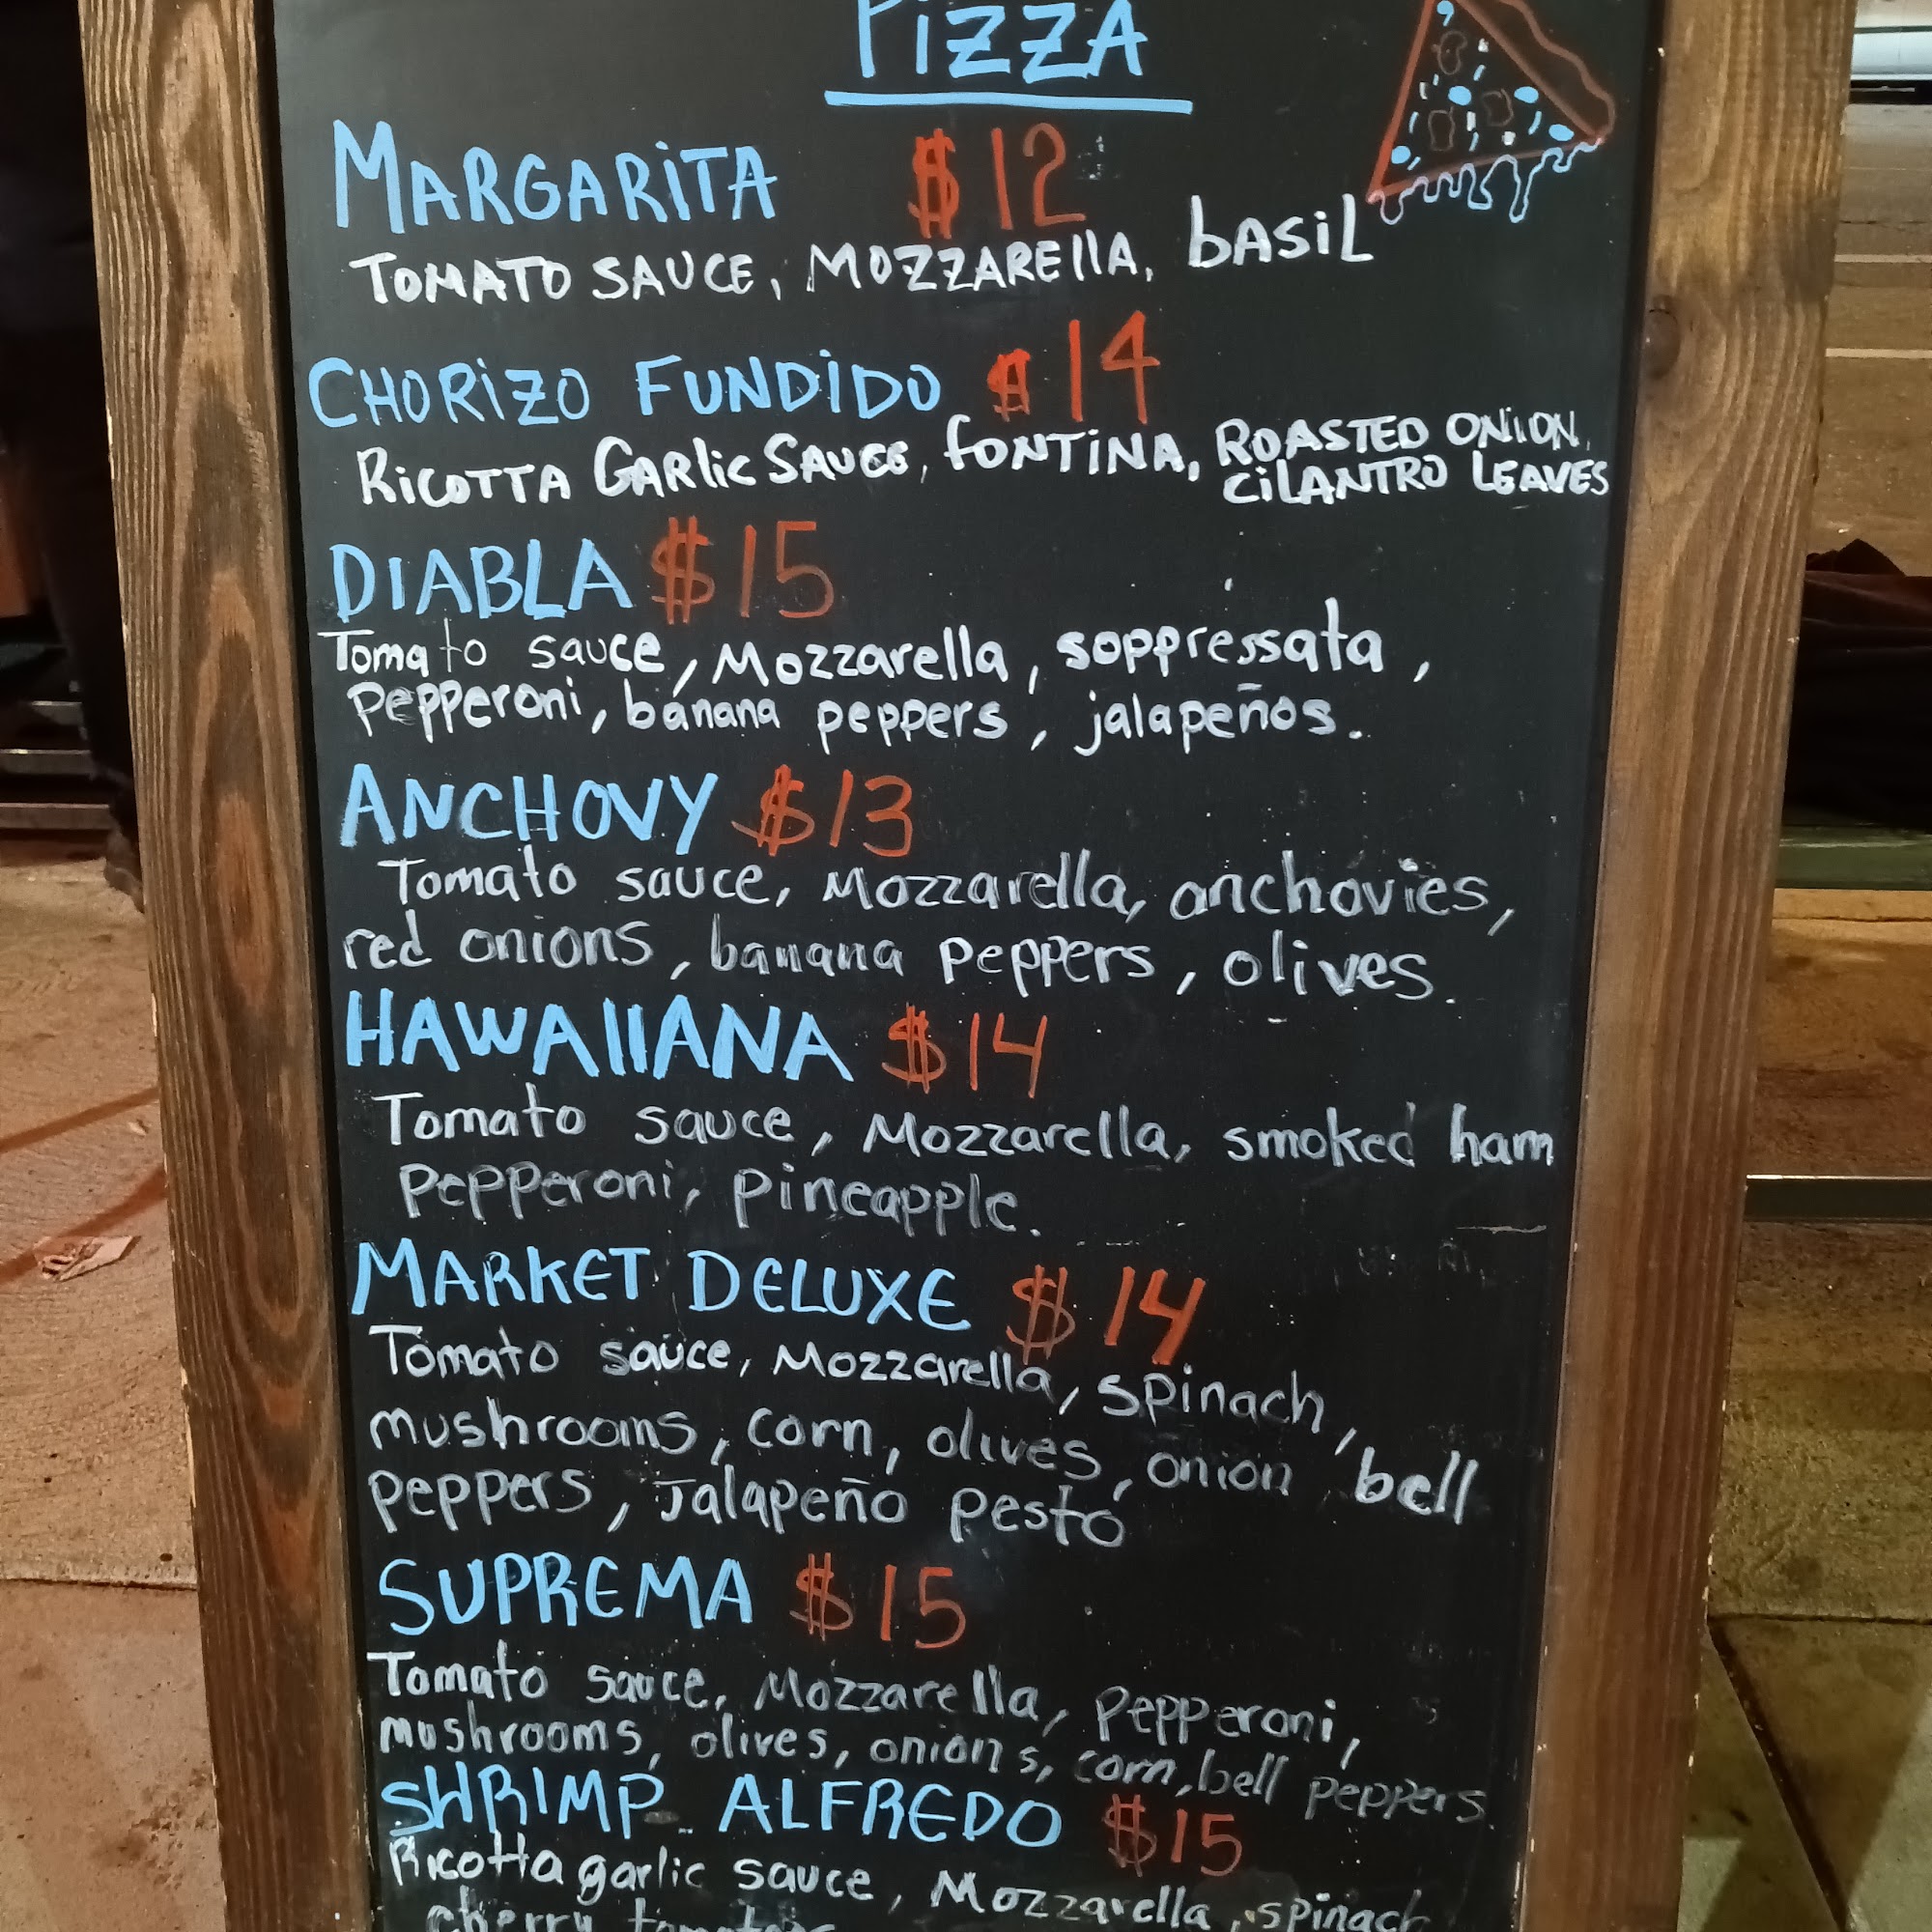 PiZZA
MARGARiTA $12
TOMATO SAUCE, MOZZAREllA, bASiL
CHORiZO FUNDiDO $14
RiCOTTA GARlic SAUCE, fONTiNA, ROASTED ONiON,
CiLANTRO LEAVES
DIABLA $15
Tomato sauce, Mozzarella, soppressata,
Pepperoni, banana peppers, jalapeños.
ANCHOVY $13
Tomato sauce, Mozzarella, anchovies,
red onions, banana peppers, olives.
HAWAIIANA $14
Tomato sauce, Mozzarella, smoked ham
Pepperoni, pineapple.
MARKET DELUXE $14
Tomato sauce, Mozzarella, spinach,
mushrooms, corn, olives, onion, bell
peppers, Jalapeño pesto
SUPREMA $15
Tomato sauce, Mozzarella, Pepperoni,
mushrooms, olives, onions, corn, bell peppers.
SHRIMP ALFREDO $15
Ricotta garlic sauce, Mozzarella, spinach
cherry tomatoes